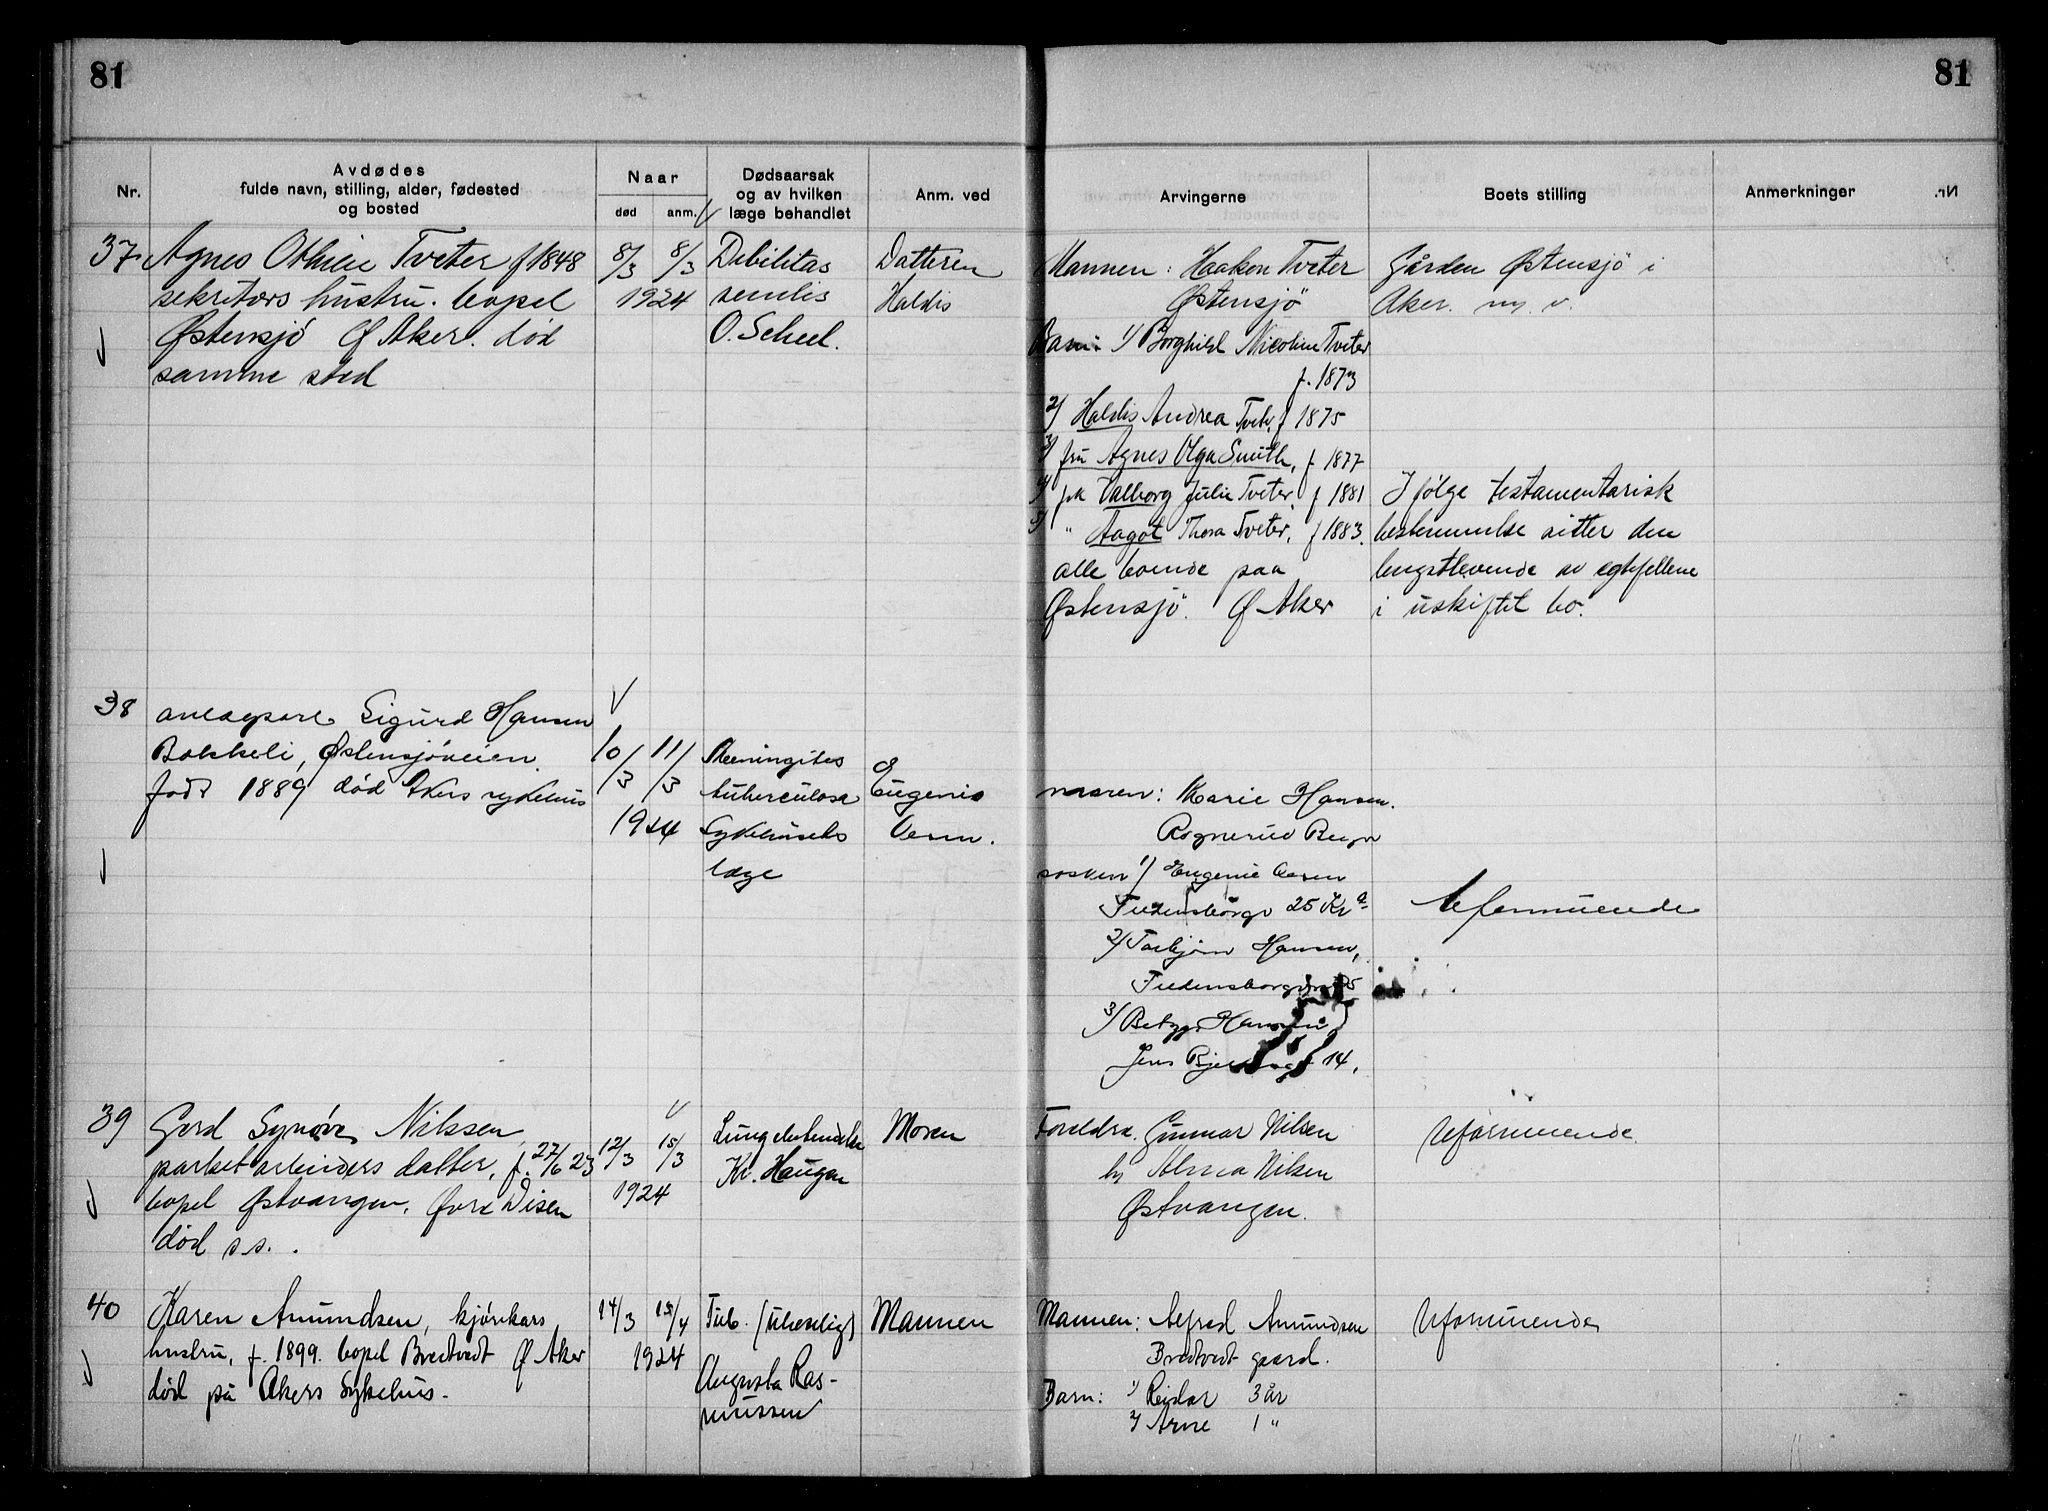 81
81
Nr.
Avdødes
fulde navn, stilling, alder, fødested
og bosted
Naar
død anm.
Dødsaarsak
og av hvilken
læge behandlet
Anm. ved
Arvingerne
Boets stilling
Anmerkninger
37
Agnes Othilie Tveter f 1848
sekritærs hustru. bopel
Østensjö Ø Aker. død
samme sted
8/3 8/3
1924
Debilitas
senilis
O. Scheel.
Datteren
Haldis
Mannen: Haakon Tveter
Østensjö
Barn: 1/ Borghild Nicoline Tveter
f. 1873
2/ Haldis Andrea Tvet. f 1875
3/ fru Agnes Olga Smith, f 1877
4/ frk Valborg Julie Tveter, f 1881
5/ " Aagot Thora Tveter, f 1883.
alle boende paa
Østensjö. Ø Aker
Gården Østensjö i
Aker. m. v.
I følge testamentarisk
bestemmelse sitter den
lengstlevende av egtefellene
i uskiftet bo.
38
Sigurd Hansen
Bakkeli, Østensjöveien
født 1889 død Akers sykehus
10/3 11/3
1924
Meningitis
tuberculosa
Sykehusets
læge
Eugenie
moren: Marie Hansen.
Rognerud
søsken 1/ Eugenie
Fredensborgv 25 Kr a
2/ Torbjörn Hansen,
3/ Hansen
Jens 14.
Uformuende
39
Gerd Synöve Nilssen
parketarbeiders datter, f. 27/6 23
bopel Østvangen, Øvre Disen
død s.s.
12/3 15/3
1924
Lungebetendelse
Kr. Haugen
Moren
Foreldre. Gunnar Nilsen
og Alma Nilsen
Østvangen.
Uformuende.
40
Karen Amundsen, kjörekars
hustru, f. 1899. bopel Bredtvedt Ø Aker
død på Akers Sykehus.
14/3 15/4
1924
Tub. (uheselig)
Augusta Ras-
mussen
Mannen
Mannen: Alfred Amundsen
Bredtvedt gaard.
Barn: 1/ Reidar 3 år
2/ Arne 1 "
Uformuende